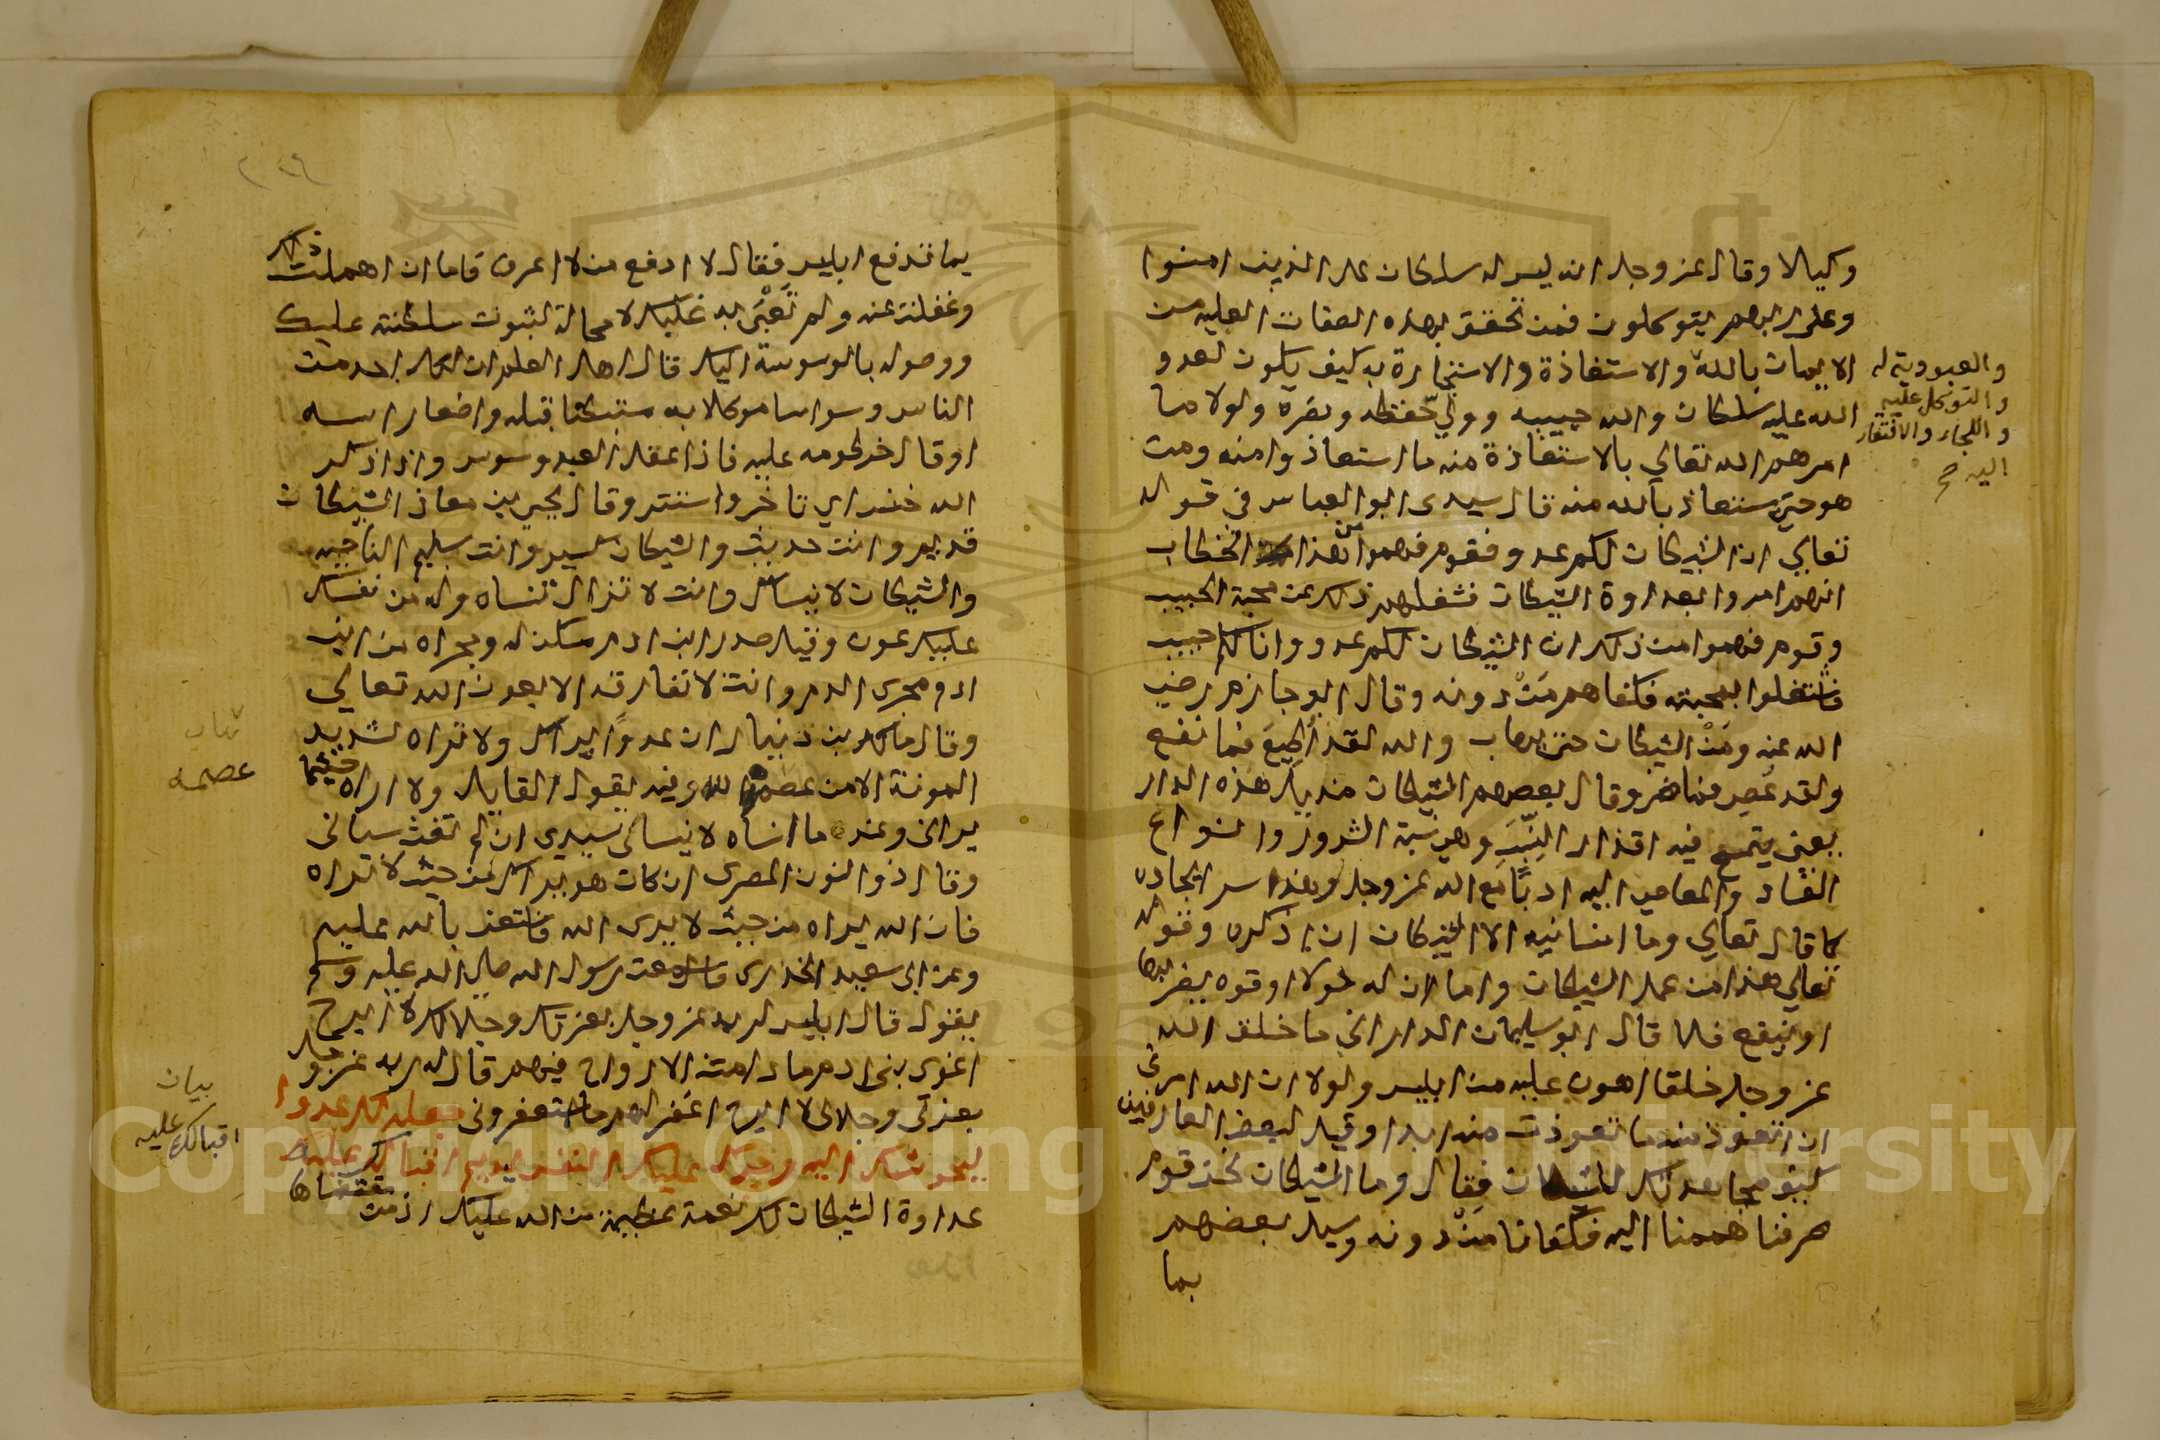 وكيلا وقال عز وجل انه ليس له سلطان على الذين امنوا
وعلى ربهم يتوكلون فمن تحقق بهذه الصفات العلية من
الايمان بالله والاستعاذة والاستجارة به كيف يكون لعدو
والعبودية له
والتوكل عليه
واللجاء والافتقار
اليه صح
الله عليه سلطان والله حبيبه وولي حفظه ونصره ولولا ما
امرهم الله تعالى بالاستعاذة منه ما استعاذوا منه ومن
هو حتى يستعاذ بالله منه قال سيدى ابو العباس فى قوله
تعالى ان الشيطان لكم عدو فقوم فهموا من هذا الخطاب
انهم امروا بعداوة الشيطان فشغلهم ذلك عن محبة الحبيب
وقوم فهموا من ذلك ان الشيطان لكم عدو وانا لكم حبيب
فاشتغلوا بمحبته فكفاهم من دونه وقال ابو حازم رضي
الله عنه ومن الشيطان حتى يهاب والله لقد اطيع فما نفع
ولقد عصى فما ضر وقال بعضهم الشيطان منديل هذه الدار
يعنى يتمسح فيه اقذار النسب وهو نسبة الشرور وانواع
الفساد والمعاصى اليه ادبا مع الله عز وجل وهذا سر ايجاده
كما قال تعالى وما انسانيه الا الشيطان ان اذكره وقوله
تعالى هذا من عمل الشيطان واما ان له حولا او قوة يضر بها
او ينفع فلا قال ابو سليمان الدارانى ما خلق الله
عز وجل خلقا اهون عليه من ابليس ولولا ان الله امرنى
ان اتعوذ منه ما تعوذت منه ابدا وقيل لبعض العارفين
كيف مجاهدتك للشيطان فقال وما الشيطان نحن قوم
صرفنا هممنا اليه فكفانا من دونه وسيل بعضهم
بما
بما تدفع ابليس فقال لا ادفع من لا اعرف فاما ان اهملت ذلك
وغفلت عنه ولم تعبى به غلبك لا محالة لثبوت سلطنته عليك
ووصوله بالوسوسة اليك قال اهل العلم ان لكل احد من
الناس وسواسا موكلا به مستبطنا قبله واضعا راسه
او قال خرطومه عليه فاذا غفل العبد وسوس واذا ذكر
الله خنس اي تاخر واستتر وقال يحيى بن معاذ الشيطان
قديم وانت حديث والشيطان كيس وانت سليم الناحية
والشيطان لا ينساك وانت لا تزال تنساه وله من نفسك
عليك عون وقيل صدر ابن ادم مسكن له ومجراه من ابن
ادم مجرى الدم وانت لا تفارقه الا بعون الله تعالى
وقال مالك بن دينار ان عدوا يراك ولا تراه لشديد
المونة الا من عصم الله وفيه يقول القايل ولا اراه حيثما
عصمه
يرانى وعند ما انساه لا ينسانى سيدى ان لم تغث سبانى
وقال ذو النون المصرى ان كان هو يراك من حيث لا تراه
فان الله يراه من حيث لا يرى الله فاستعن بالله عليه
وعن ابى سعيد الخدرى قال سمعت رسول الله صلى الله عليه وسلم
يقول قال ابليس لربه عز وجل بعزتك وجلالك لا ابرح
اغوى بنى ادم ما دامت الارواح فيهم قال له ربه عز وجل
بعزتى وجلالى لا ابرح اغفر لهم ما استغفرونى جعله لك عدوا
ليحوشك اليه وحرك عليك النفس ليديم اقبالك عليه
بيان
اقبالك عليه
عداوة الشيطان لك نعمة عظيمة من الله عليك اذ من مقتضاها